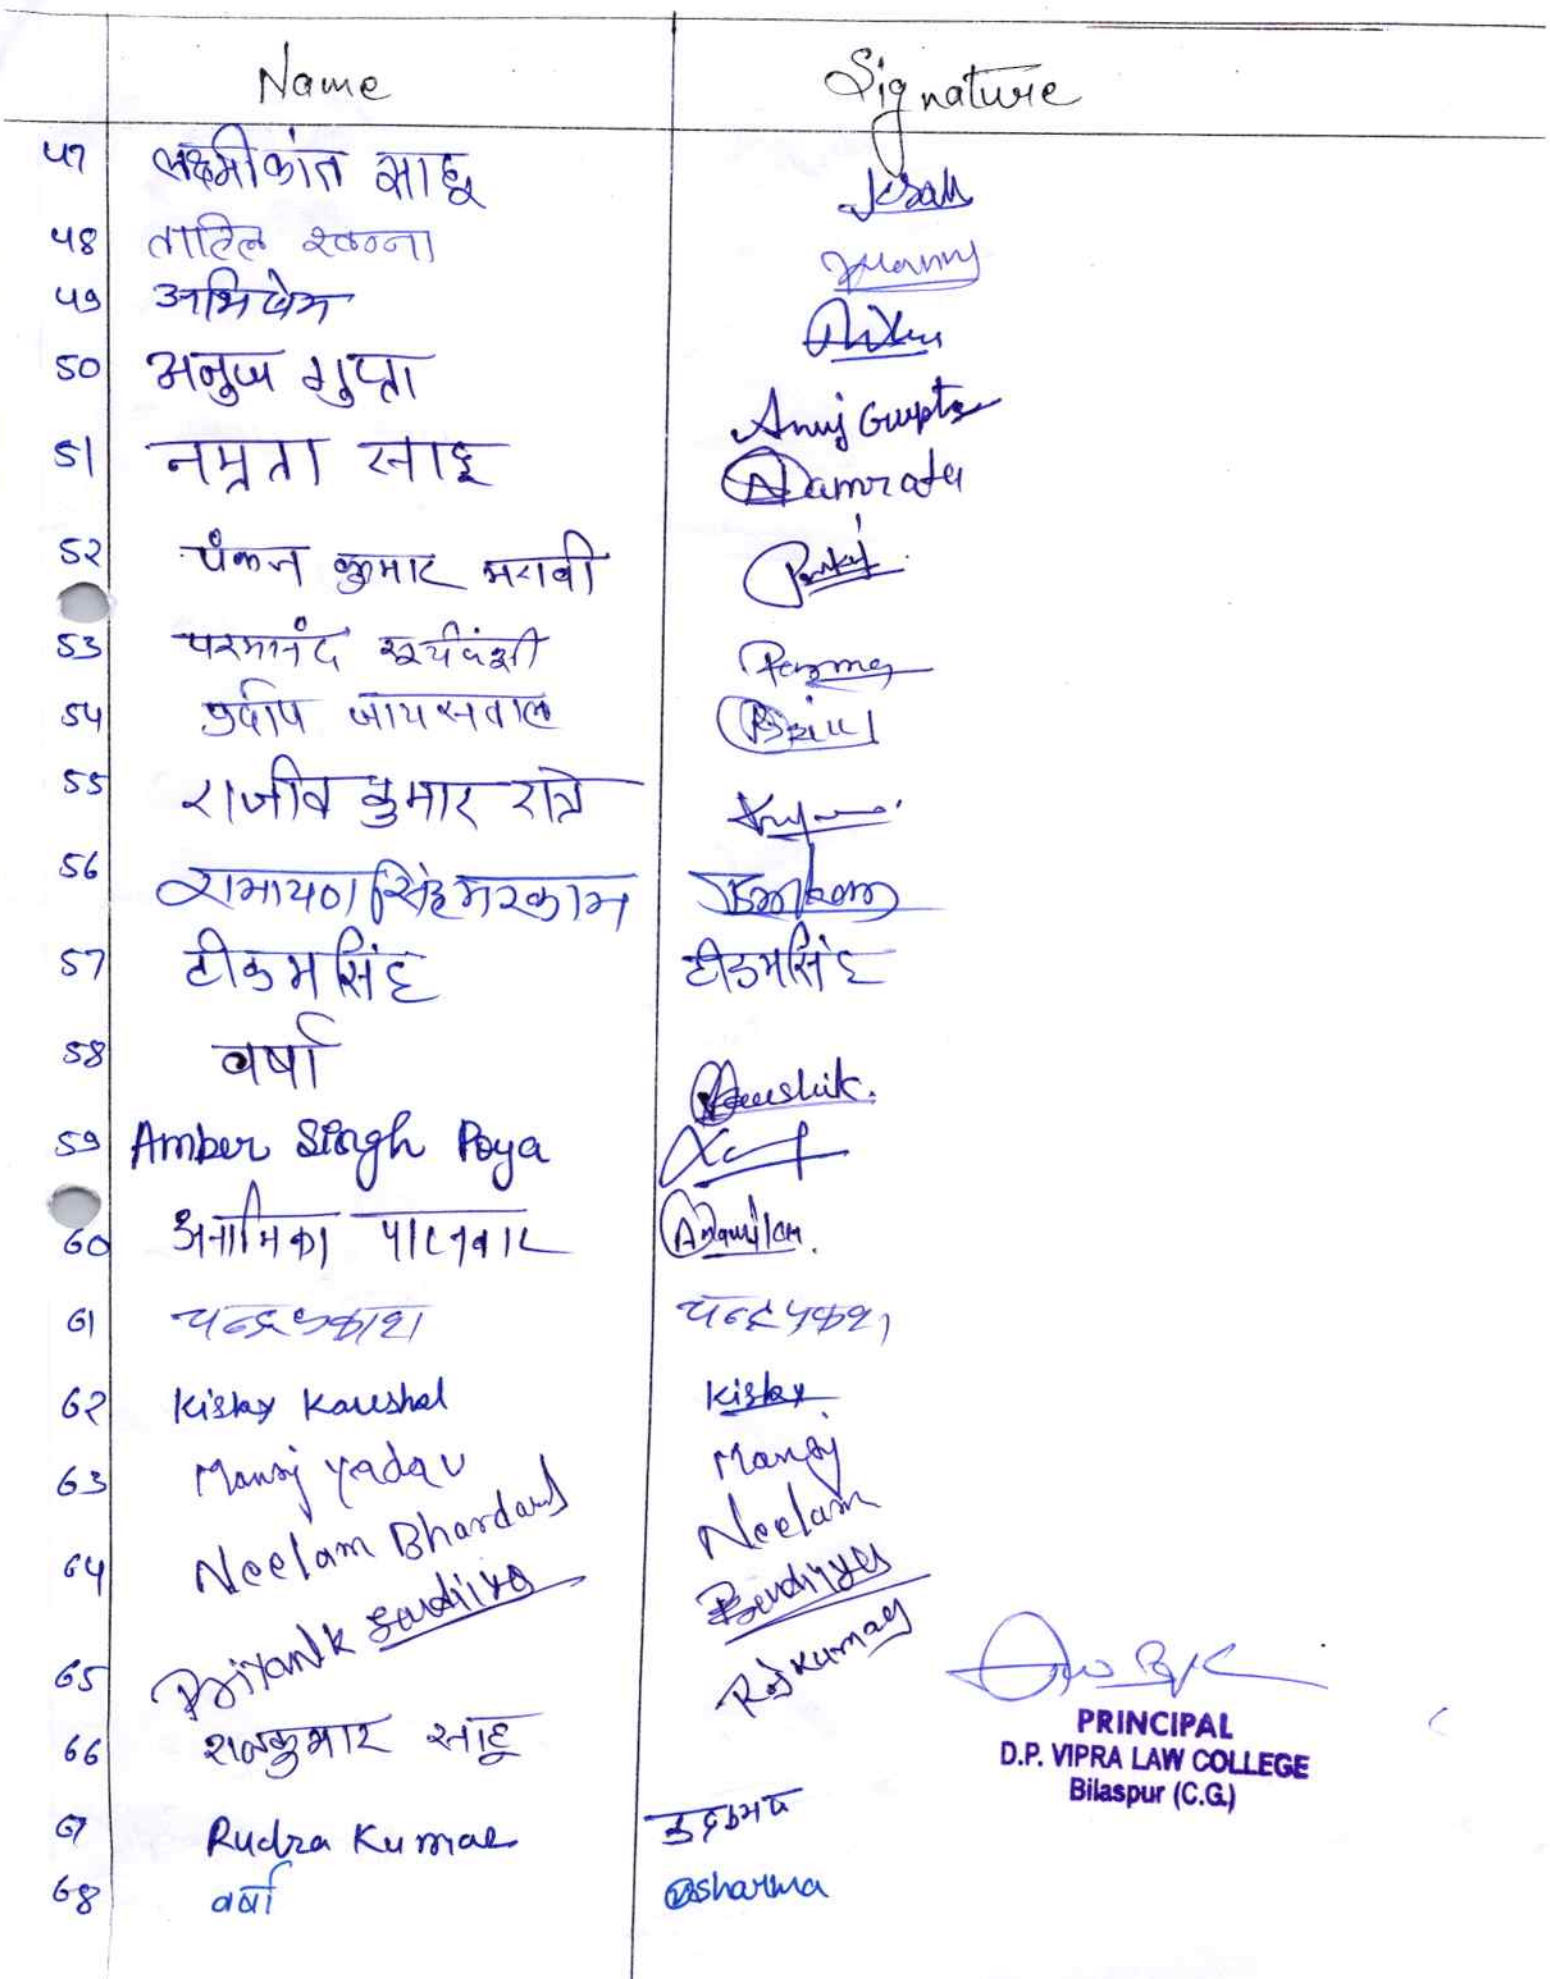 Name Signature
47 लक्ष्मीकांत साहू
48
49 अभिषेक
50 अनुज गुप्ता Anuj Gupta
51 नम्रता साहू Namrata
52 पंकज कुमार मरावी Pankaj
53 परमानंद सूर्यवंशी
54 प्रदीप जायसवाल
55 राजीव कुमार रात्रे
56 रामायण सिंह मरकाम
57 टीकम सिंह टीकम सिंह
58 वर्षा Kaushik.
59 Amber Singh Poya
60 अनामिका पाटनवार Anamika.
61 चन्द्रप्रकाश चन्द्रप्रकाश
62 Kislay Kaushal Kislay
63 Manoj Yadav Manoj
64 Neelam Bhardwaj Neelam
65 Priyank
66 राजकुमार साहू Rajkumar
67 Rudra Kumar
68 वर्षा sharma
PRINCIPAL
D.P. VIPRA LAW COLLEGE
Bilaspur (C.G.)